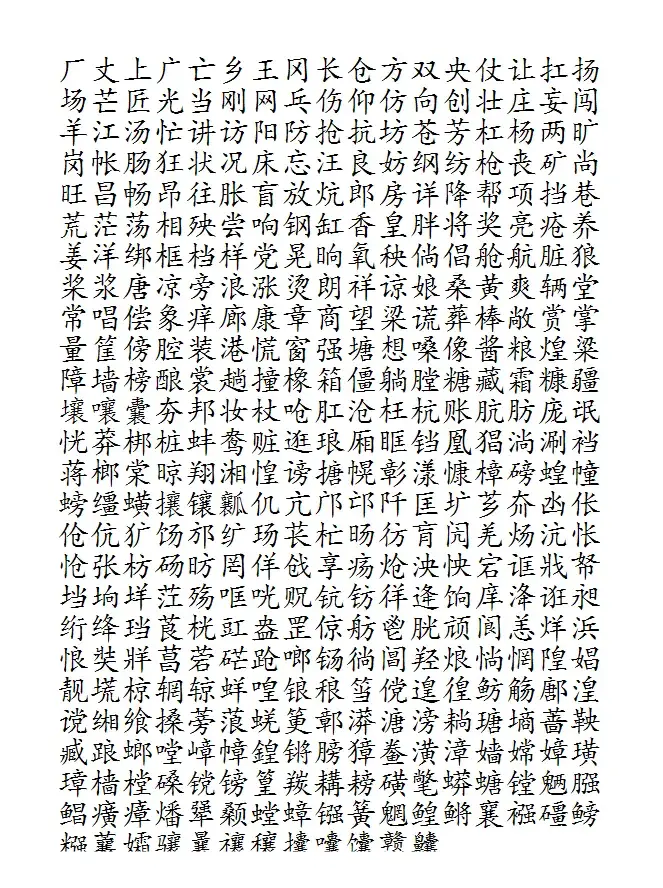 厂丈上广亡乡王冈长仓方双央仗让扛扬
场芒匠光当刚网乓伤仰仿向创壮庄妄闯
羊江汤忙讲访阳防抢抗坊苍芳杠杨两旷
岗帐肠狂状况床忘汪良妨纲纺枪丧矿尚
旺昌畅昂往胀盲放炕郎房详降帮项挡巷
荒茫荡相殃尝响钢缸香皇胖将奖亮疮养
姜洋绑框档样党晃晌氧秧倘倡舱航脏狼
桨浆唐凉旁浪涨烫朗祥谅娘桑黄爽辆堂
常唱偿象痒廊康章商望梁谎葬棒敞赏掌
量筐傍腔装港慌窗强塘想嗓像酱粮煌粱
障墙榜酿裳趟撞橡箱僵躺膛糖藏霜糠疆
壤嚷囊夯邦妆杖呛肛沧枉杭账肮肪庞氓
恍莽梆桩蚌鸯赃逛琅厢眶铛凰猖淌涮裆
蒋榔棠晾翔湘惶谤搪幌彰漾慷樟磅蝗幢
螃缰蟥攘镶瓤仉亢邝邙阡匡圹芗夼凼伥
伧伉犷饧邡纩玚苌杧旸彷肓闶羌炀沆怅
怆张枋砀昉罔佯戗享疡炝泱怏宕诓戕帑
垱垧垟茳殇哐咣贶钪钫徉逄饷庠洚诳昶
绗绛珰莨桄豇盎罡倞舫鬯胱颃阆恙烊浜
悢奘牂菖菪硭跄啷铴徜阊羟烺惝惘隍娼
靓塃椋辋辌蛘喤锒稂筜傥遑徨鲂觞鄘湟
谠缃飨搡蒡蒗蜣筻鄣漭溏滂耥瑭墒蔷鞅
臧踉螂嘡嶂幛锽锵膀獐鲞潢漳嫱嫦嫜璜
璋樯樘磉镋镑篁羰耩耪磺氅蟒螗镗魉膙
鲳癀瘴燔斝颡螳蟑镪簧魍鳇鳉襄襁礓鳑
糨蘘孀骧曩禳穰攮囔馕赣鱨